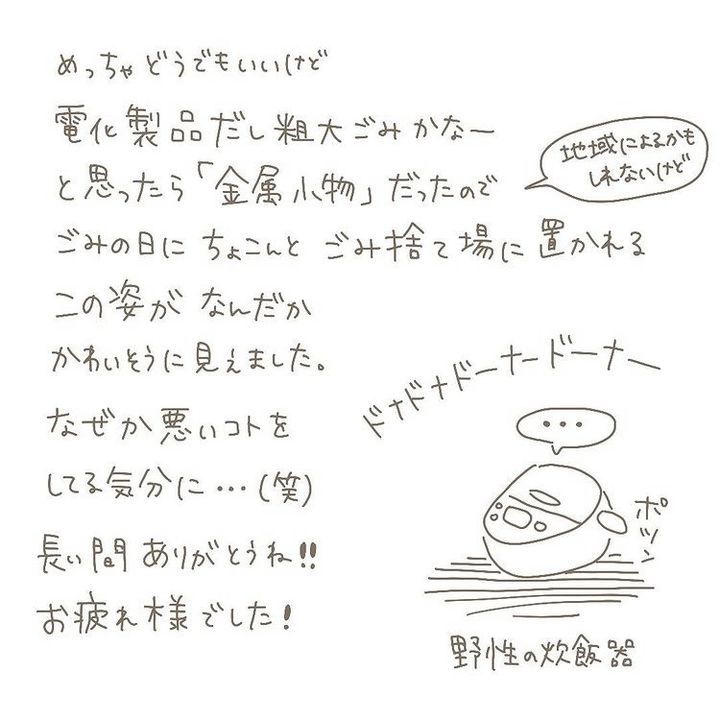 めっちゃどうでもいいけど
電化製品だし粗大ごみかなー
地域によるかも
しれないけど
と思ったら「金属小物」だったので
ごみの日に ちょこんと ごみ捨て場に 置かれる
この姿が なんだか
かわいそうに見えました。
ドナドナドーナードーナー
なぜか悪いコトを
してる気分に…(笑)
...
ポツン
長い間 ありがとうね!!
お疲れ様でした!
野性の炊飯器